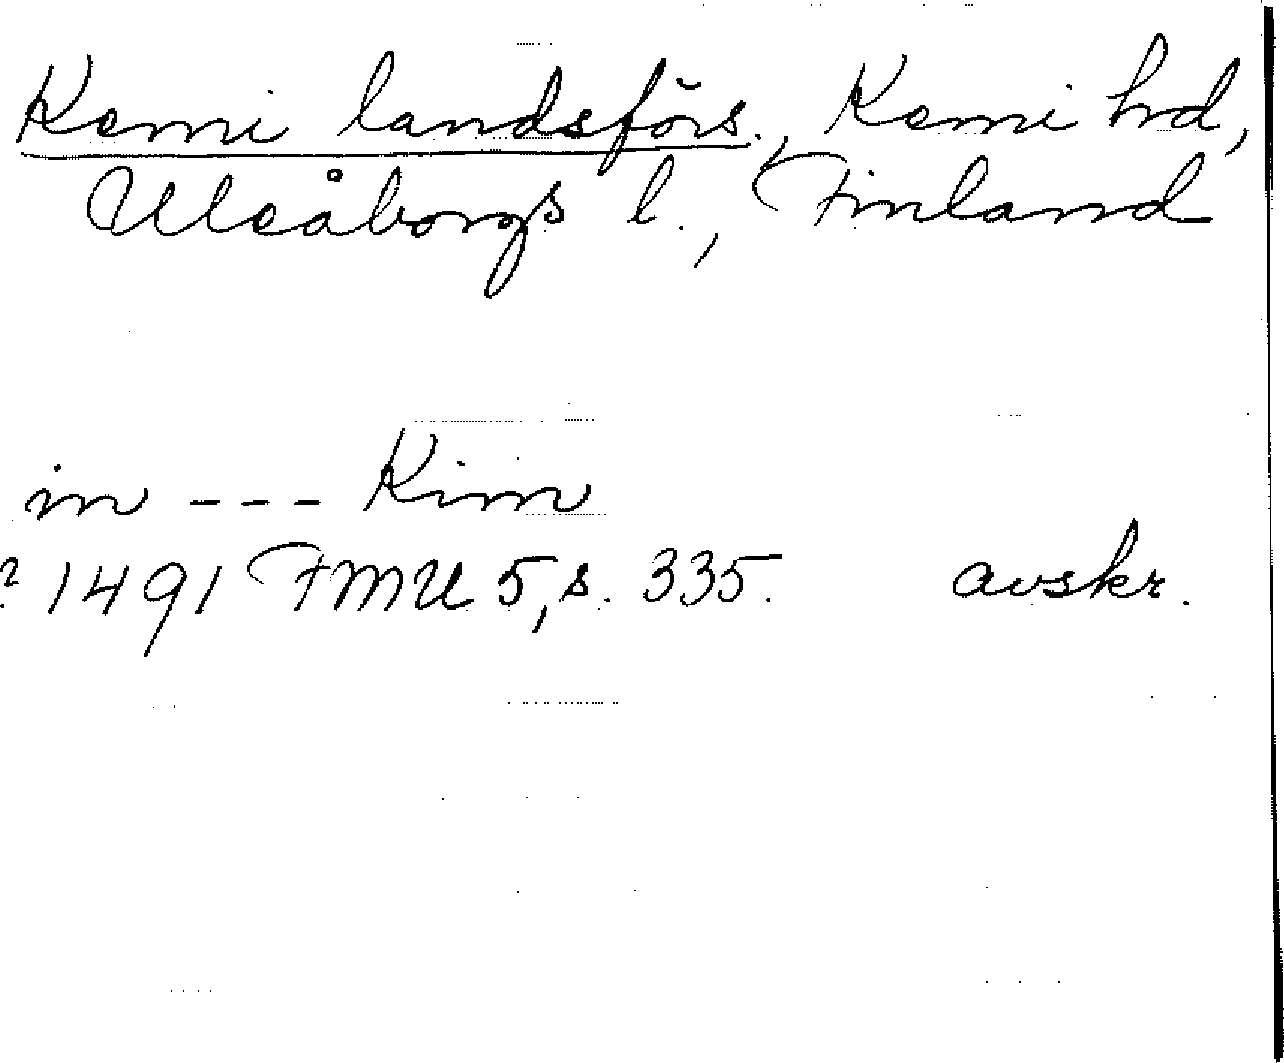 Kemi landsförs., Kemi hd,
Uleåborgs l., Finland
in --- Kim
? 1491 FMU 5, s. 335. avskr.